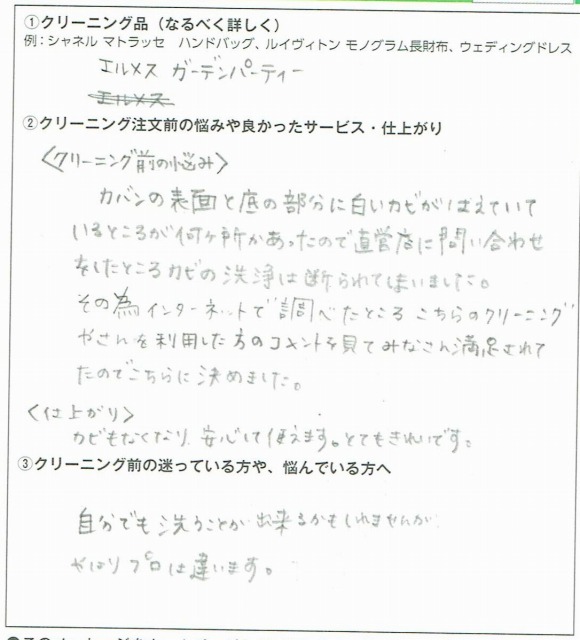 ①クリーニング品（なるべく詳しく）
例：シャネル マトラッセ　ハンドバッグ、ルイヴィトン モノグラム長財布、ウェディングドレス
エルメス ガーデンパーティー
エルメス
②クリーニング注文前の悩みや良かったサービス・仕上がり
〈クリーニング前の悩み〉
カバンの表面と底の部分に白いカビがはえていて
いるところが何ヶ所かあったので直営店に問い合わせ
をしたところカビの洗浄は断られてしまいました。
その為インターネットで調べたところ こちらのクリーニング
やさんを利用した方のコメントを見てみなさん満足されて
たのでこちらに決めました。
〈仕上がり〉
カビもなくなり、安心して使えます。とてもきれいです。
③クリーニング前の迷っている方や、悩んでいる方へ
自分でも洗うことが出来るかもしれませんが
やはりプロは違います。